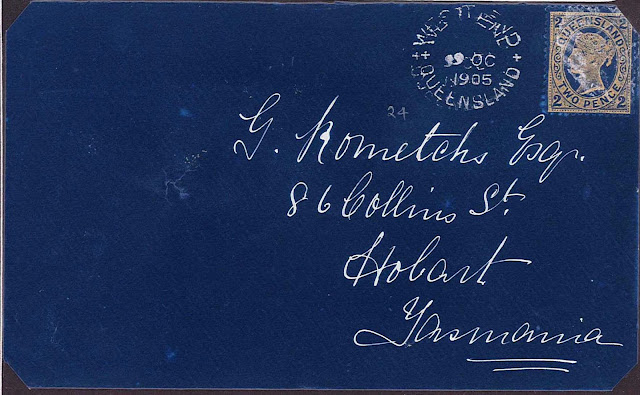 WEST END
OC
1905
QUEENSLAND
QUEENSLAND
2 2
TWO PENCE
2 2
24
G. Kometchs Esqr.
86 Collins St.
Hobart
Tasmania